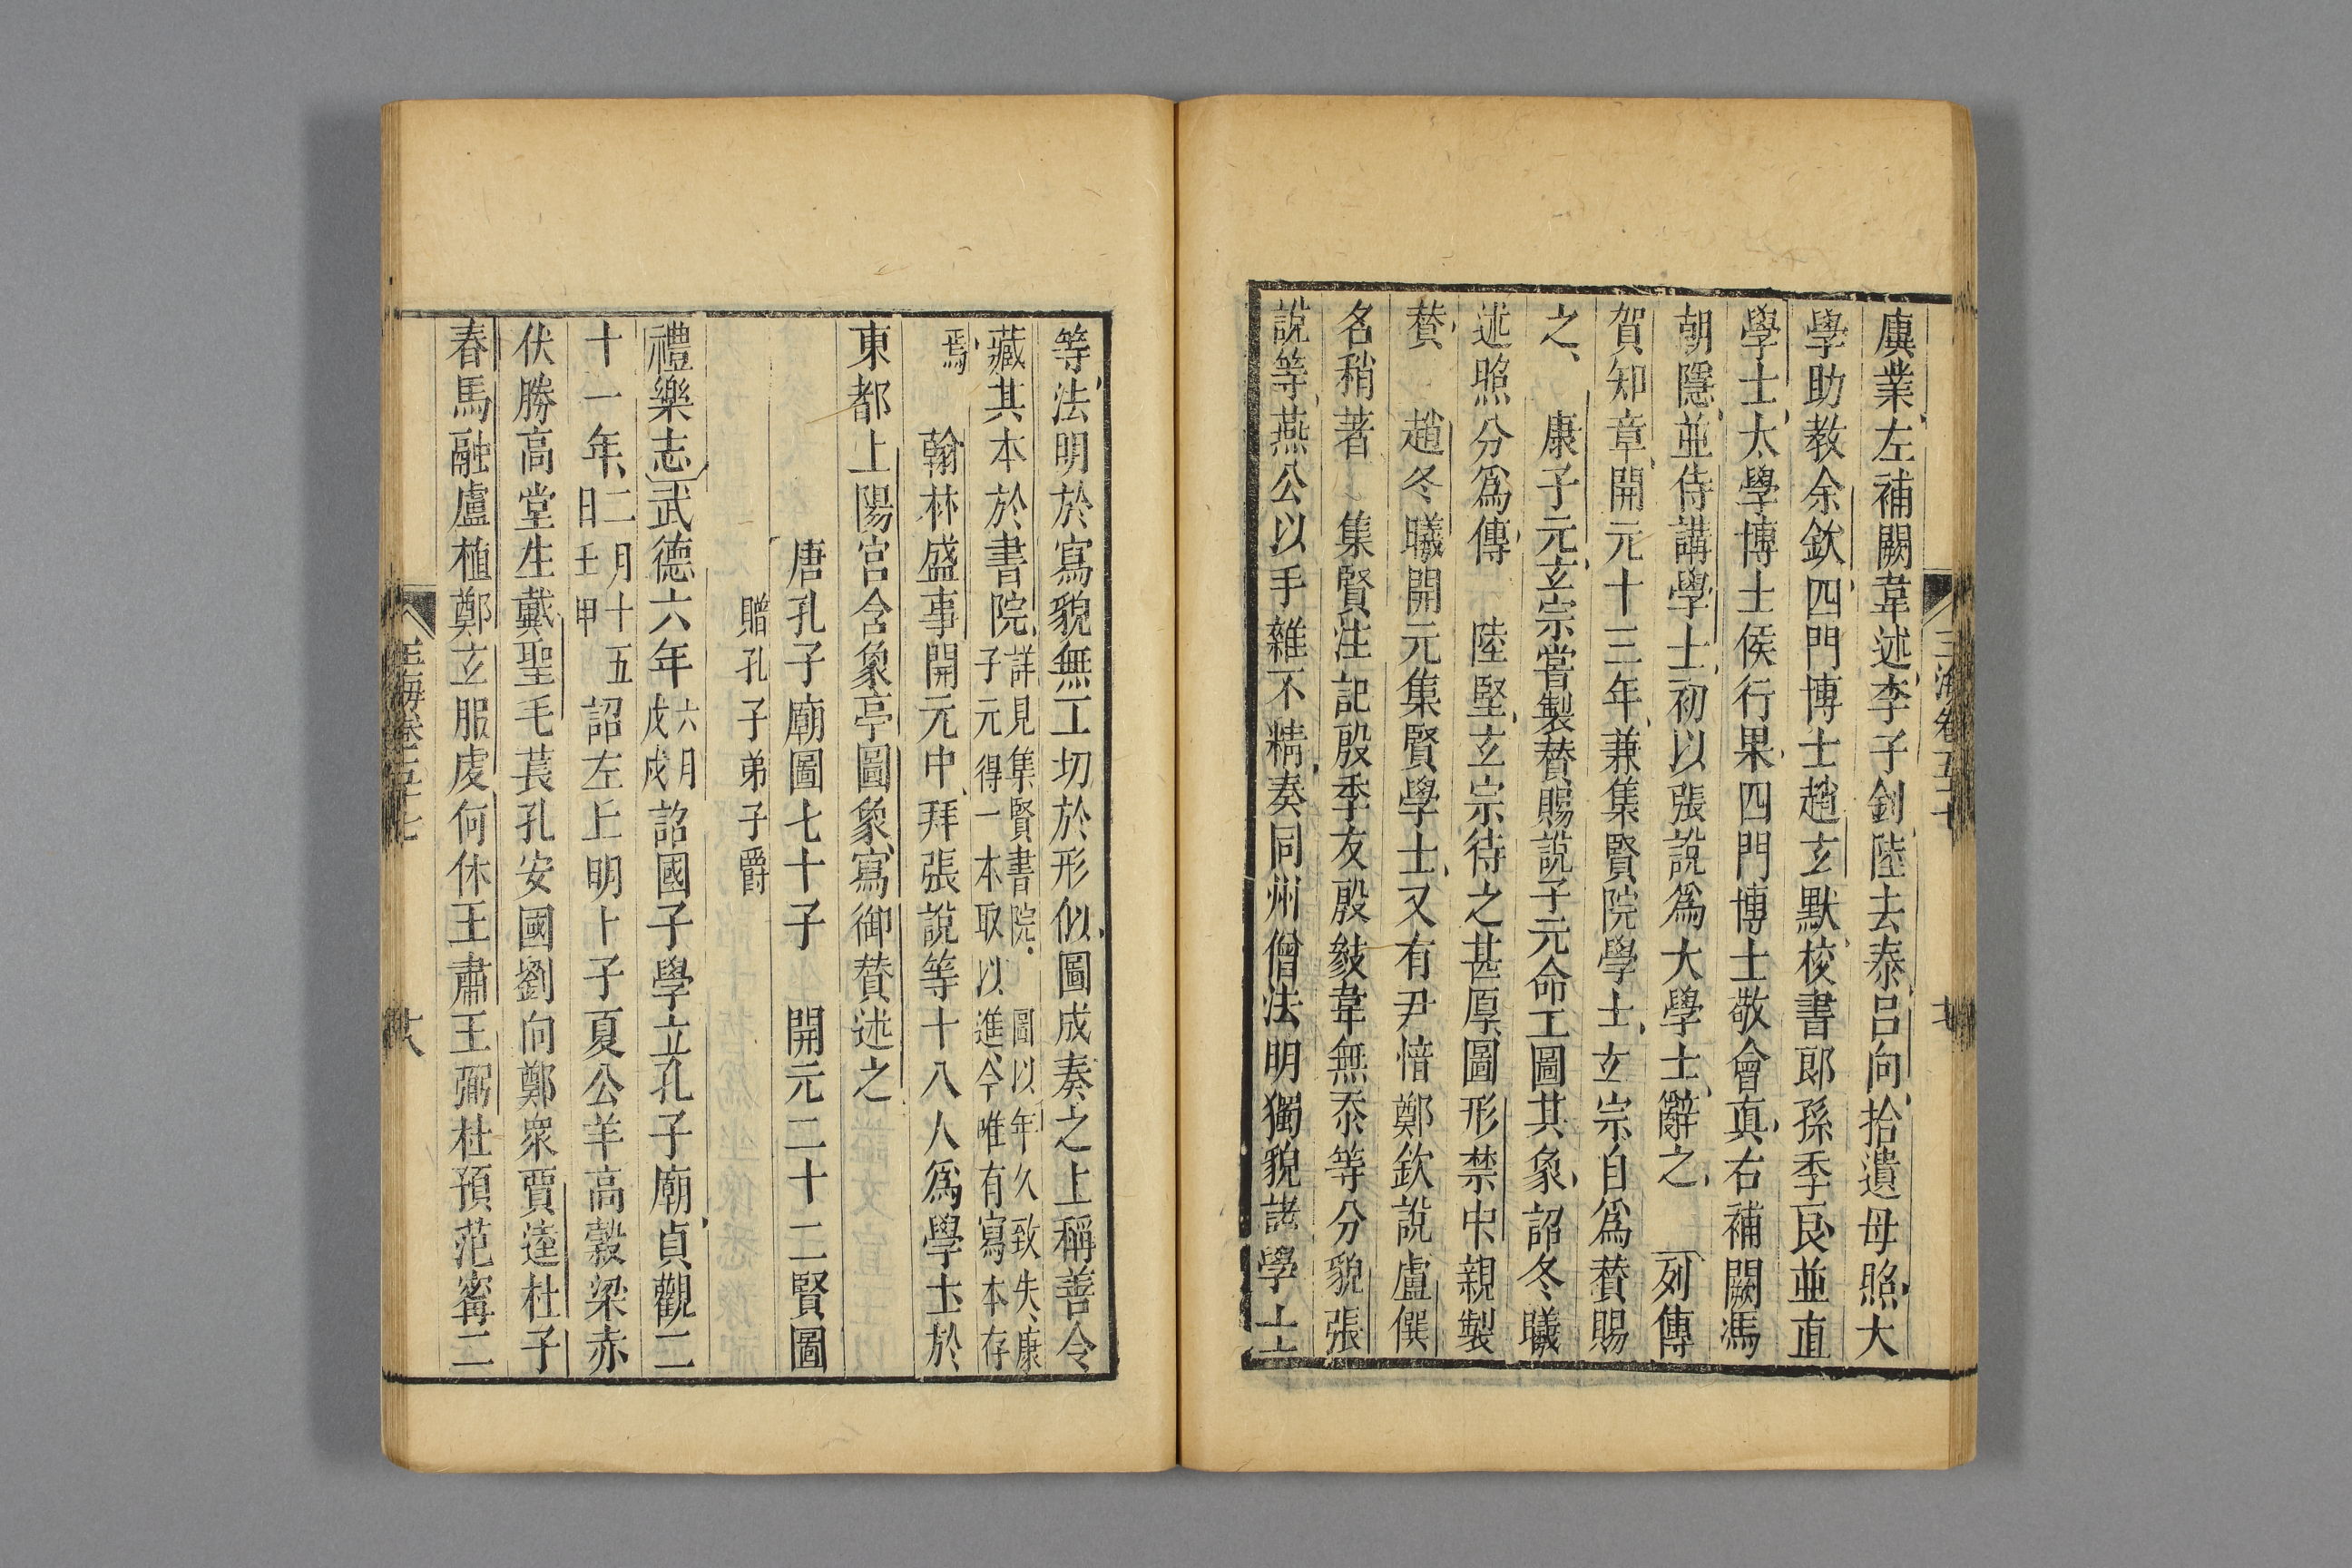 玉海卷五十七
虞業左補闕韋述李子釗陸去泰吕向拾遺母煦大
學助教余欽四門博士趙玄默校書郎孫季良並直
學士太學博士侯行果四門博士敬會真右補闕馮
朝隱並侍講學士初以張說爲大學士辭之 列傳
賀知章開元十三年兼集賢院學士玄宗自爲賛賜
之 康子元玄宗嘗製賛賜說子元命工圖其象詔冬曦
述煦分爲傳 陸堅玄宗待之甚厚圖形禁中親製
賛 趙冬曦開元集賢學士又有尹愔鄭欽說盧僎
名稍著 集賢注記殷季友殷㪍韋無忝等分貌張
說等燕公以手雜不精奏同州僧法明獨貌諸學士
等法明於寫貌無工切於形似圖成奏之上稱善令
藏其本於書院詳見集賢書院 圖以年久致失康
子元得一本取以進今唯有寫本存
焉 翰林盛事開元中拜張說等十八人爲學士於
東都上陽宫含象亭圖象寫御賛述之
唐孔子廟圖七十子 開元二十二賢圖
贈孔子弟子爵
禮樂志武德六年六月
戊戌詔國子學立孔子廟貞觀二
十一年二月十五
日壬申詔左上明卜子夏公羊高穀梁赤
伏勝高堂生戴聖毛萇孔安國劉向鄭衆賈逵杜子
春馬融盧植鄭玄服虔何休王肅王弼杜預范甯二
玉海卷五十七